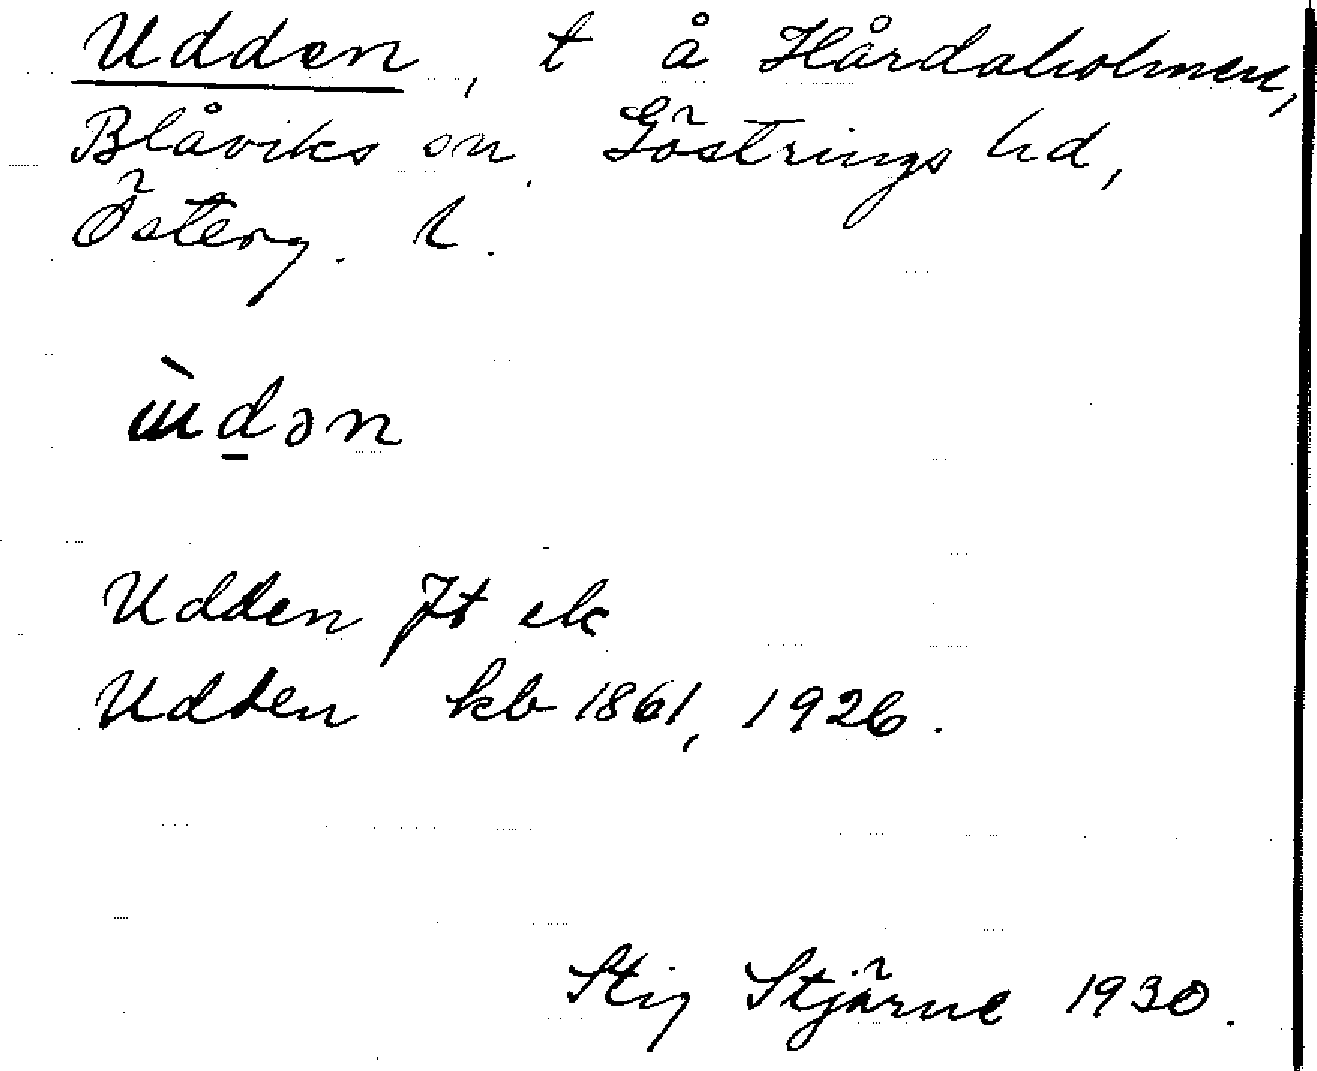 Udden, t å Hårdaholmen,
Blåviks sn, Göstrings hd,
Österg. l.
ɯ̀d̲ən
Udden Jt ek
Udden kb 1861, 1926.
Stig Stjärne 1930.